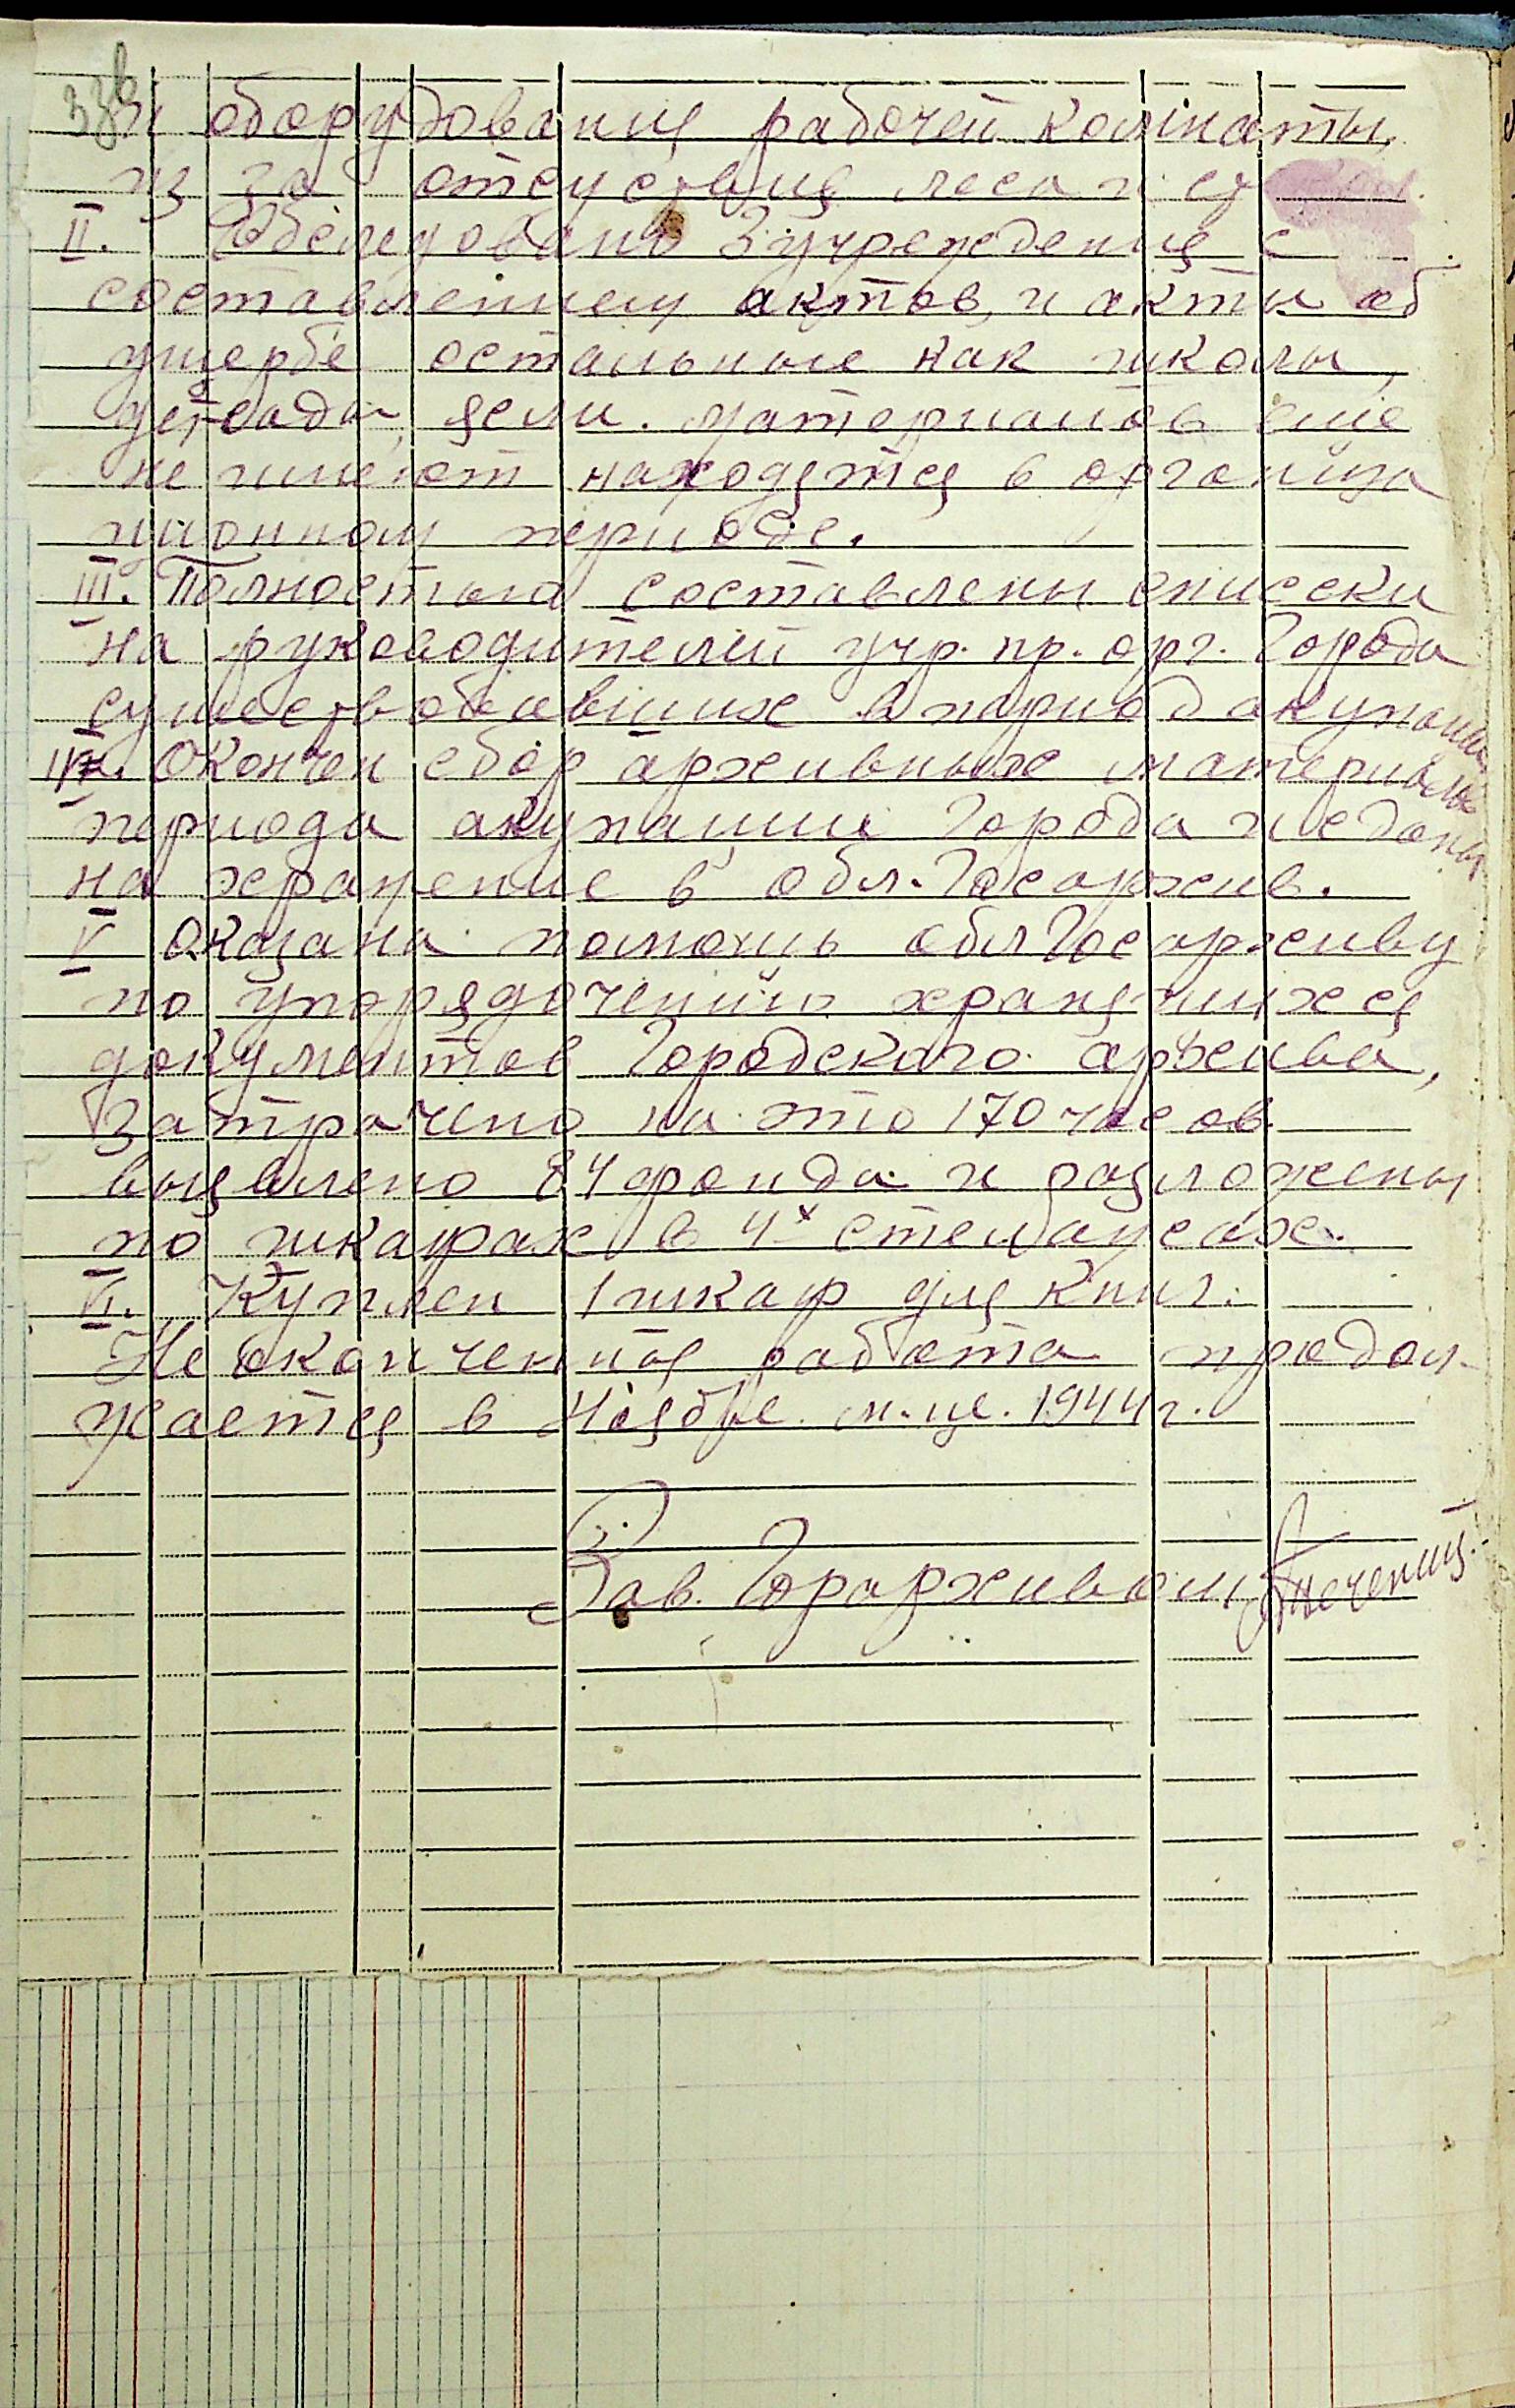 33в
и оборудования рабочей комнаты,
из за отсуствия леса и ст
II. Обследовано 3 учреждения с
составлением актов, и акты об
ущербе остальные как школы,
детсады, ясли. материалов еще
не имеют находятся в организа
ционном периоде.
III. Полностью составлены списски
на руководителей учр. пр. орг. Города
существовавших в период окупации
IV. Окончен сбор архивных материалов
периода окупации Города и сданы
на хранение в обл. Госархив.
V Оказана помощь облГосархиву
по упорядочению хранящихся
документов Городского архива,
Затрачено на это 170 часов
выявлено 84 фонда и разложены
по шкафах в 4х стелажах.
VI. Куплен 1 шкаф для книг.
Не оконченная работа продол-
жается в Ноябре м-це. 1944 г.
Зав. Горархивом